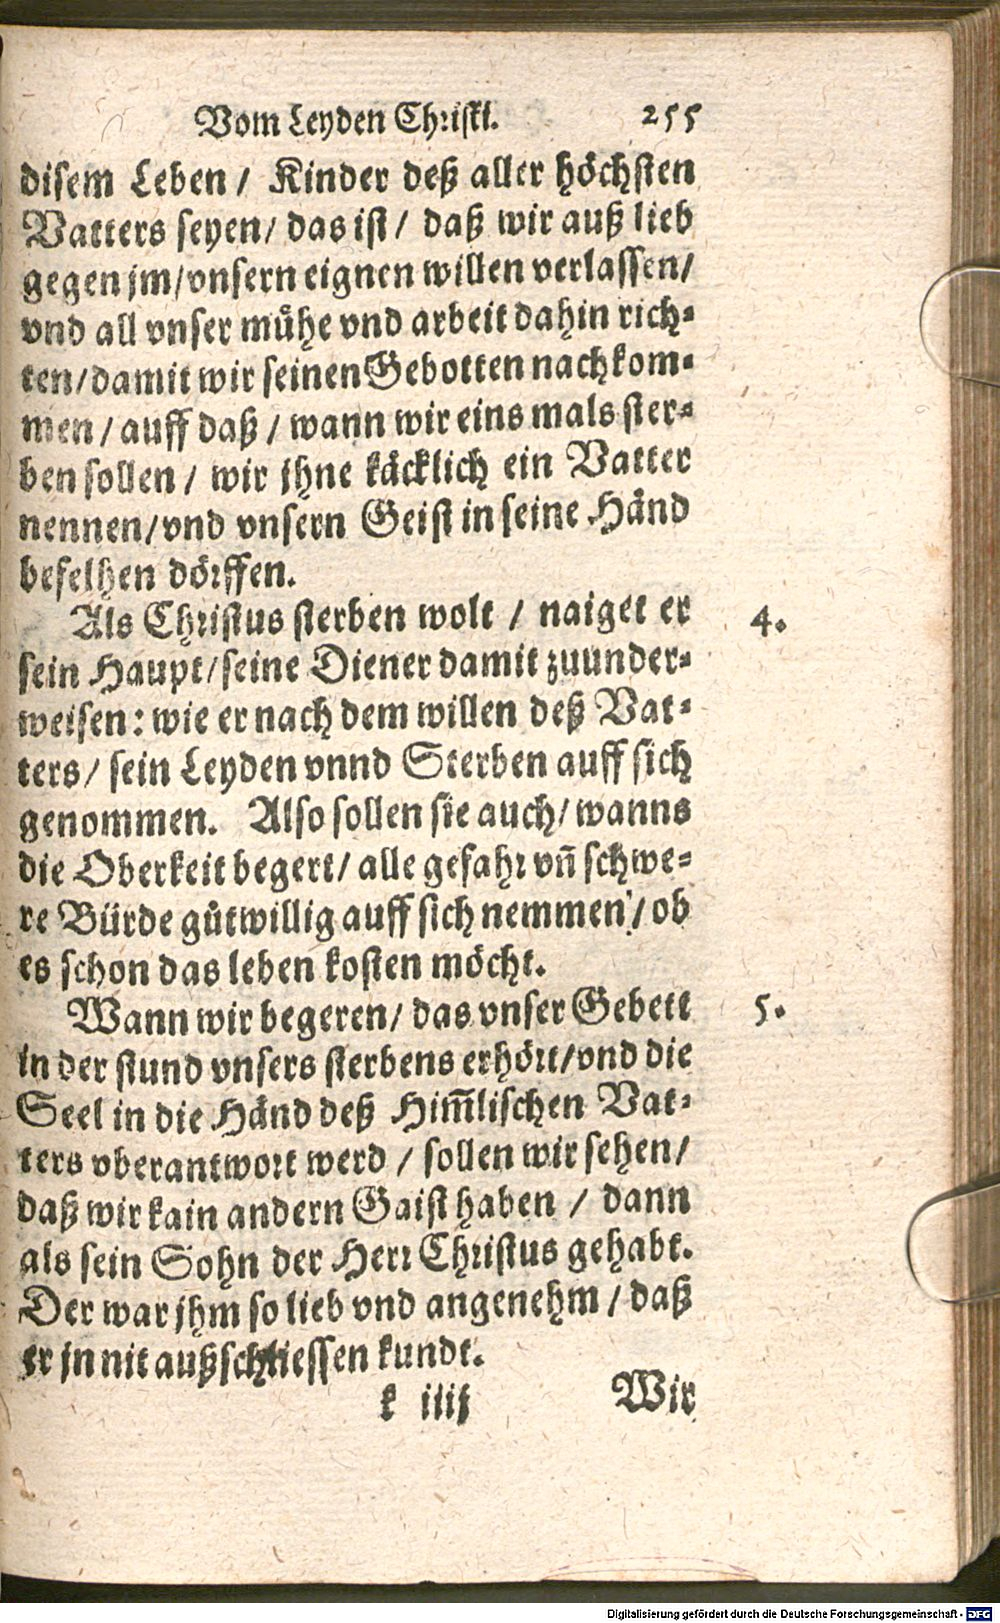 Vom Leyden Christi. 255
disem Leben / Kinder deß aller höchsten
Vatters seyen / das ist / daß wir auß lieb
gegen jm / vnsern eignen willen verlassen /
vnd all vnser mühe vnd arbeit dahin rich-
ten / damit wir seinen Gebotten nachkom-
men / auff daß / wann wir eins mals ster-
ben sollen / wir jhne käcklich ein Vatter
nennen / vnd vnsern Geist in seine Händ
befelhen dörffen.
Als Christus sterben wolt / naiget er 4.
sein Haupt / seine Diener damit zuunder-
weisen: wie er nach dem willen deß Vat-
ters / sein Leyden vnnd Sterben auff sich
genommen. Also sollen sie auch / wanns
die Oberkeit begert / alle gefahr vñ schwe-
re Bürde gůtwillig auff sich nemmen / ob
es schon das leben kosten möcht.
Wann wir begeren / das vnser Gebett 5.
in der stund vnsers sterbens erhört / vnd die
Seel in die Händ deß Him̄lischen Vat-
ters vberantwort werd / sollen wir sehen /
daß wir kain andern Gaist haben / dann
als sein Sohn der Herr Christus gehabt.
Der war jhm so lieb vnd angenehm / daß
er jn nit außschliessen kundt.
k iiij Wir
Digitalisierung gefördert durch die Deutsche Forschungsgemeinschaft - DFG